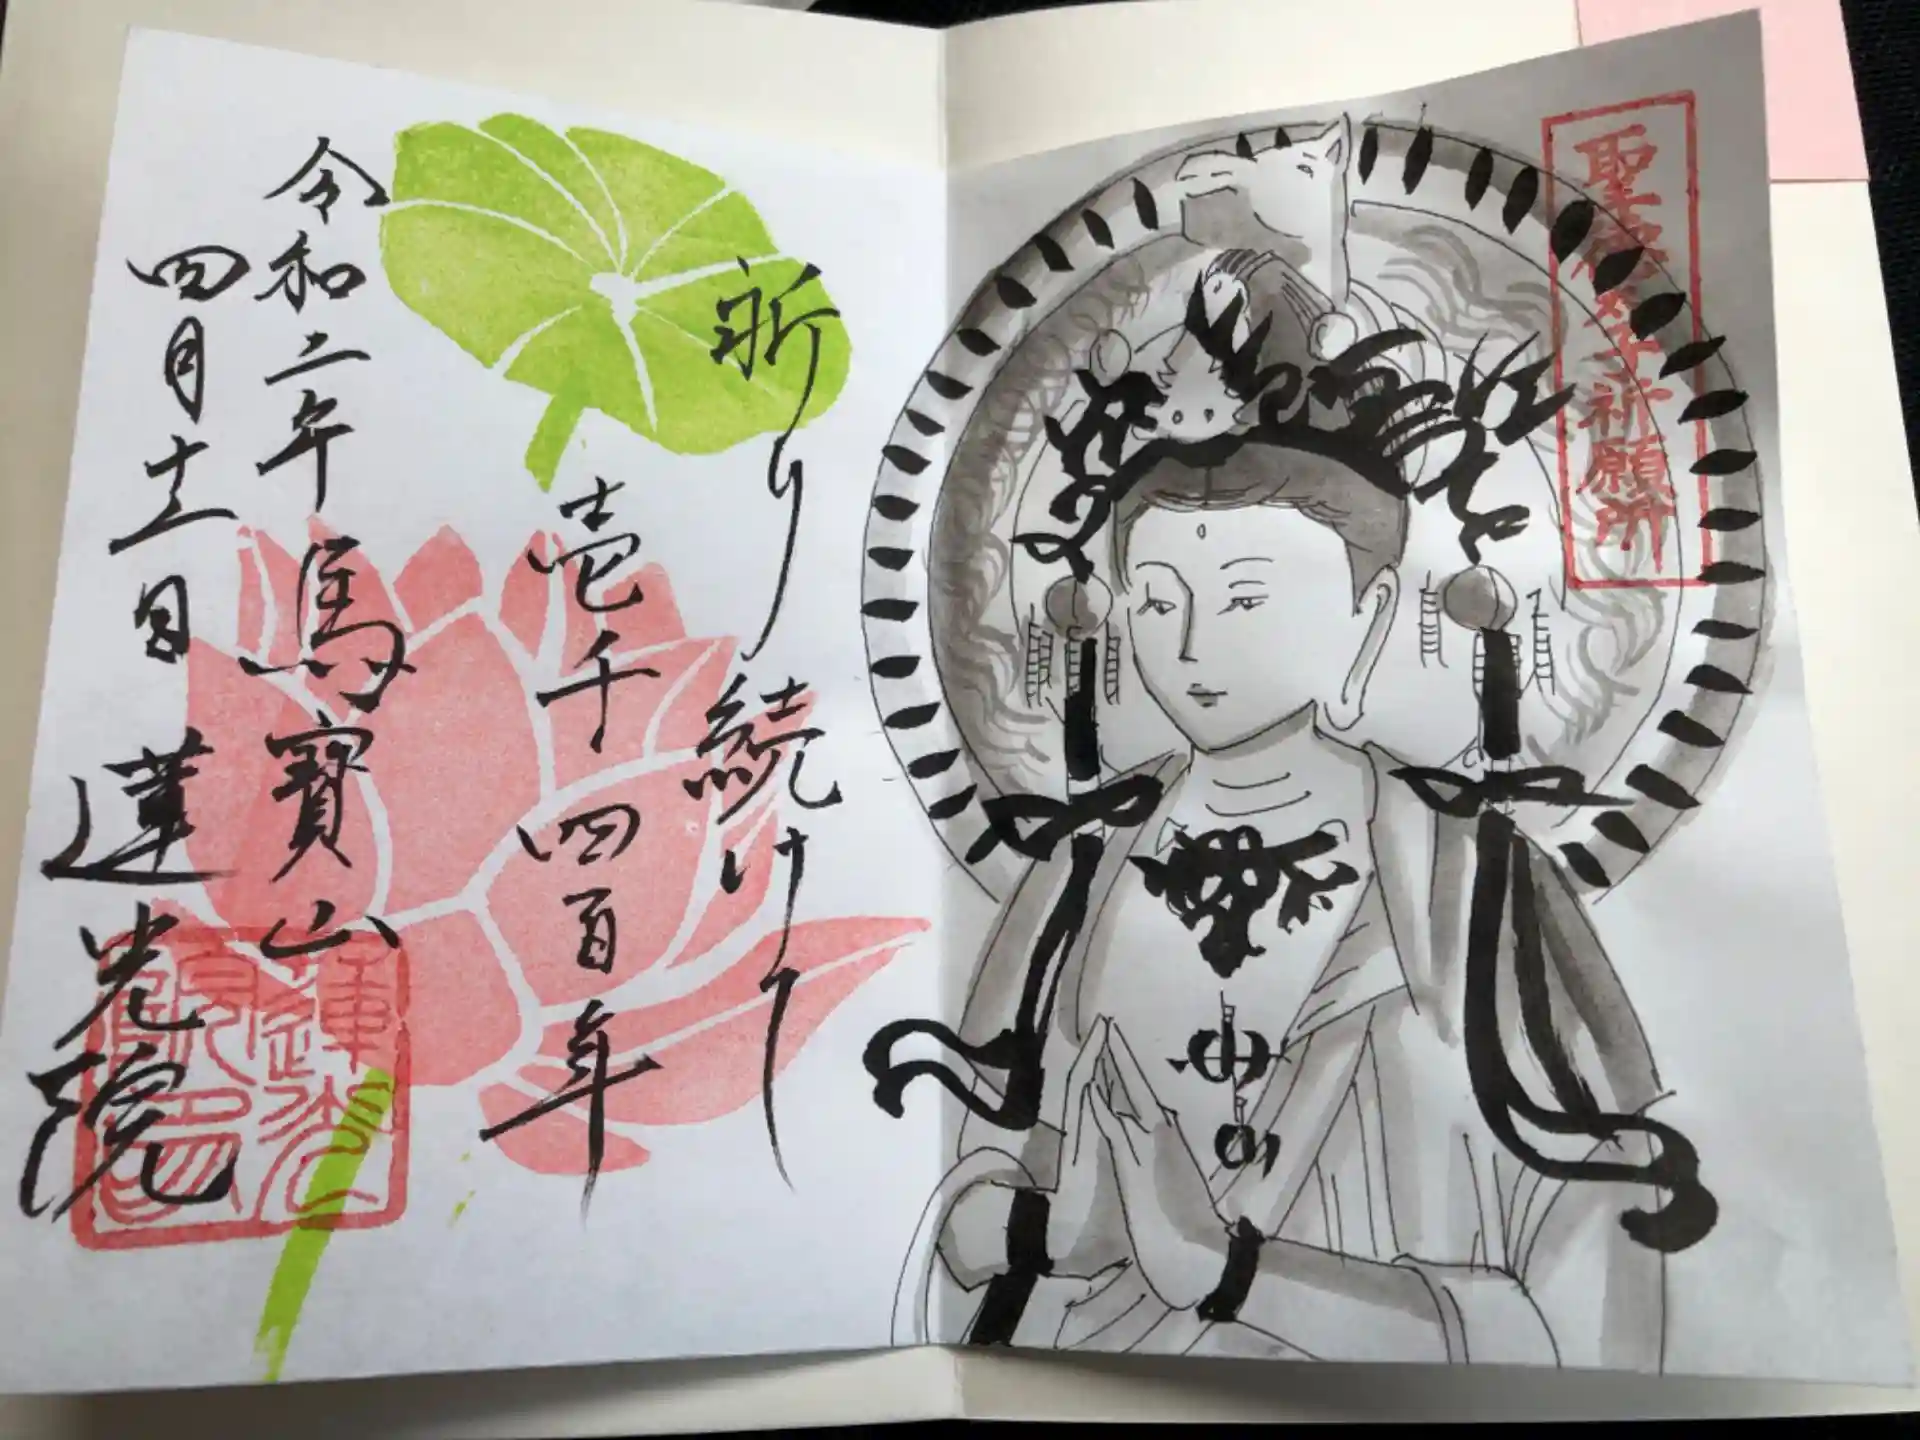 聖徳太子祈願所
祈り続けて
壱千四百年
令和二年 馬寶山
四月十二日 蓮光院